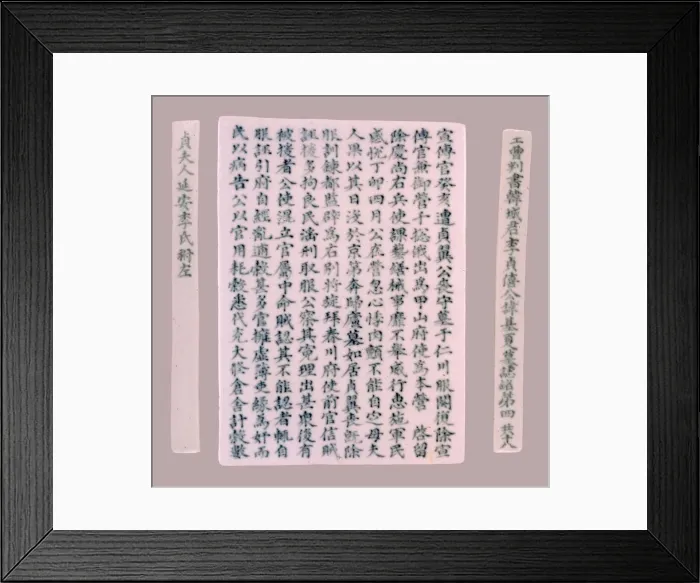 工曹判書韓城君李貞僖公諱基夏墓誌銘第四 共十八
宣傳官癸亥遭貞翼公喪守墓于仁川服闋復除宣
傳官兼御營千摠俄出爲甲山府使爲本營 啓留
除慶尚右兵使課藝繕械事靡不舉威行惠施軍民
感悅丁卯四月公在營忽心悸肉顫不能自定母夫
人果以其日沒於京第奔歸廬墓如居貞翼喪旣除
服訓鍊都監辟爲右別將旋拜春川府使前官信賊
誣援多拘良民濫刑取服公察其冤理出甚衆復有
被援者公使混立官屬中命賊認其不能認者輒自
服誣引府自經亂逋穀甚多官擁虛簿吏緣爲奸而
民以病告公以官用耗穀悉代充大修倉舍計穀數
貞夫人延安李氏祔左